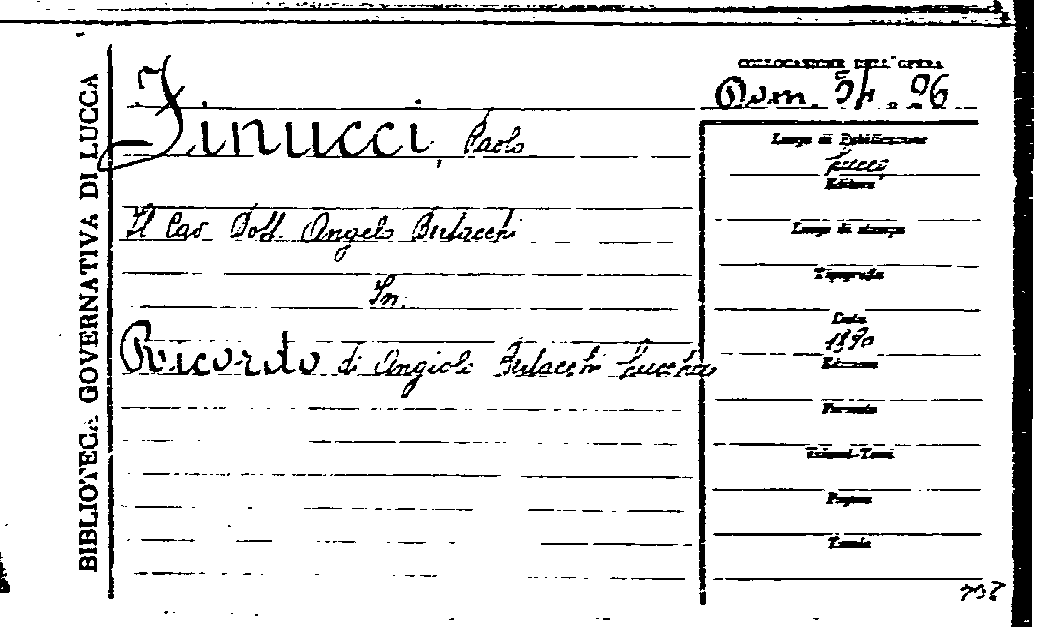 BIBLIOTECA GOVERNATIVA DI LUCCA
COLLOCAZIONE DELL'OPERA
Finucci, Paolo
Luogo di Pubblicazione
Lucca
Editore
Il Cav Dott. Angelo Bertacchi
Luogo di stampa
Tipografia
In:
Data
1890
Ricordo di Angiolo Bertacchi Lucchese
Edizione
Formato
Volumi-Tomi
Pagine
Tavole